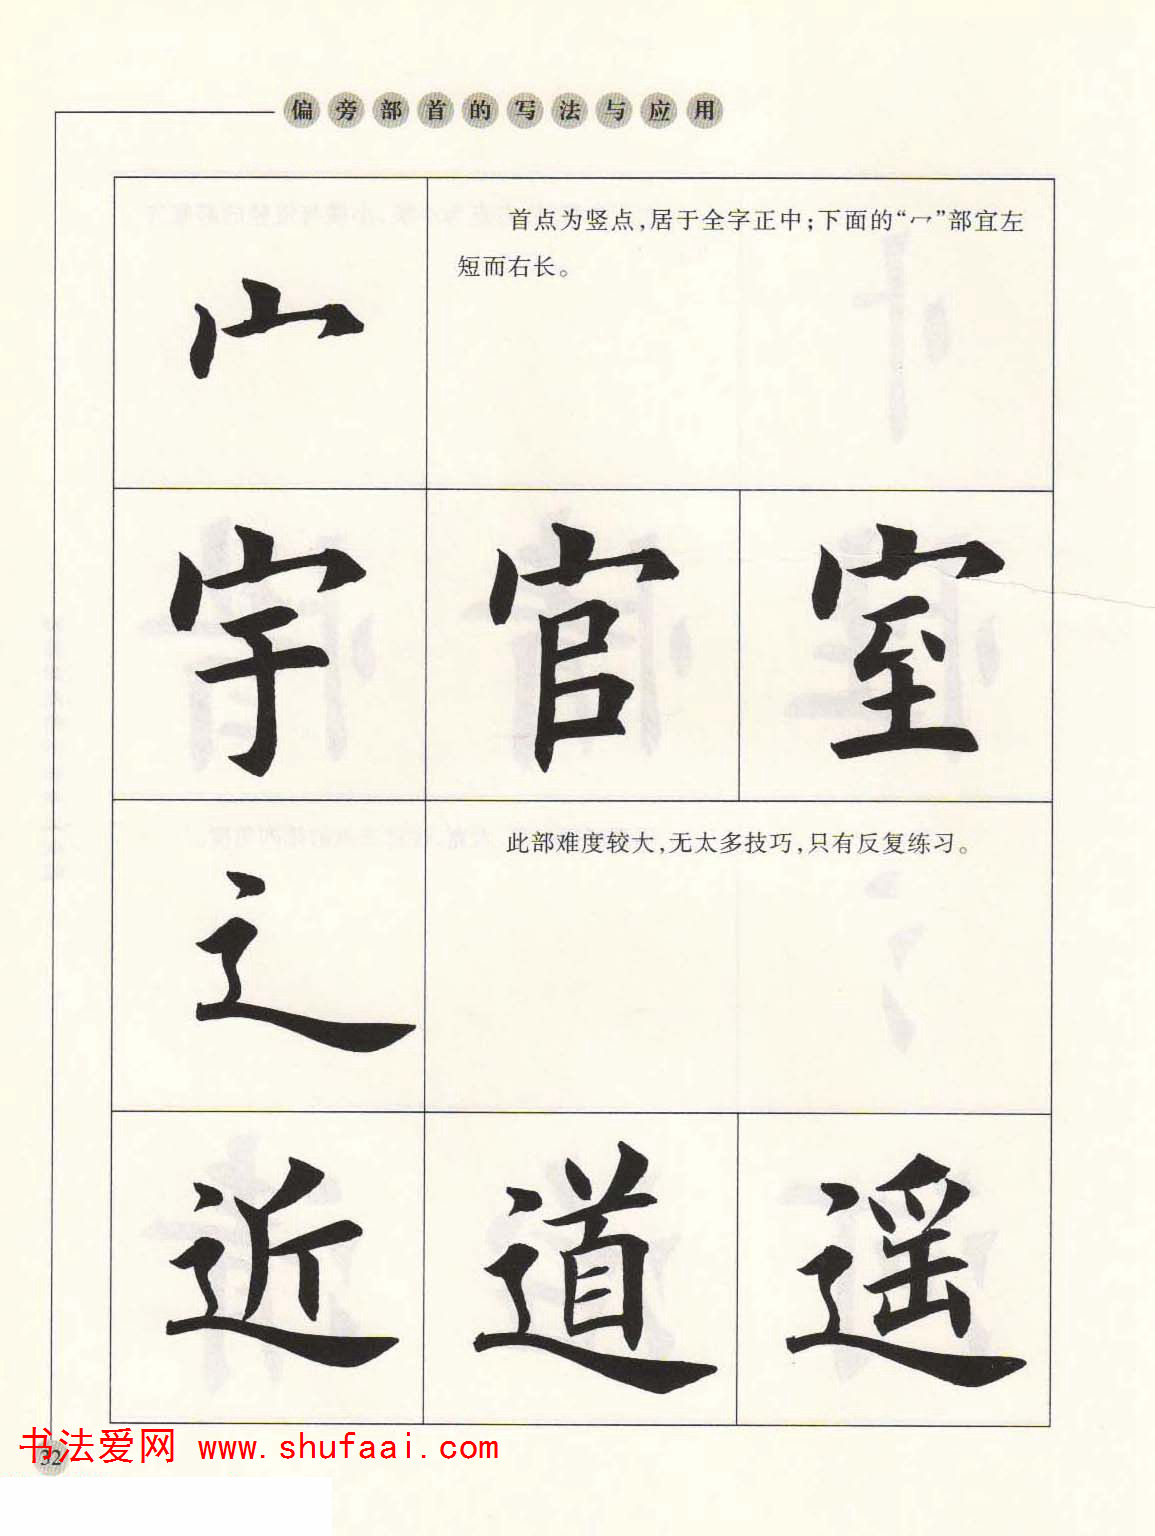 偏旁部首的写法与应用
宀
首点为竖点,居于全字正中;下面的“冖”部宜左
短而右长。
宇 官 室
辶
此部难度较大,无太多技巧,只有反复练习。
近 道 遥
书法爱网 www.shufaai.com
32